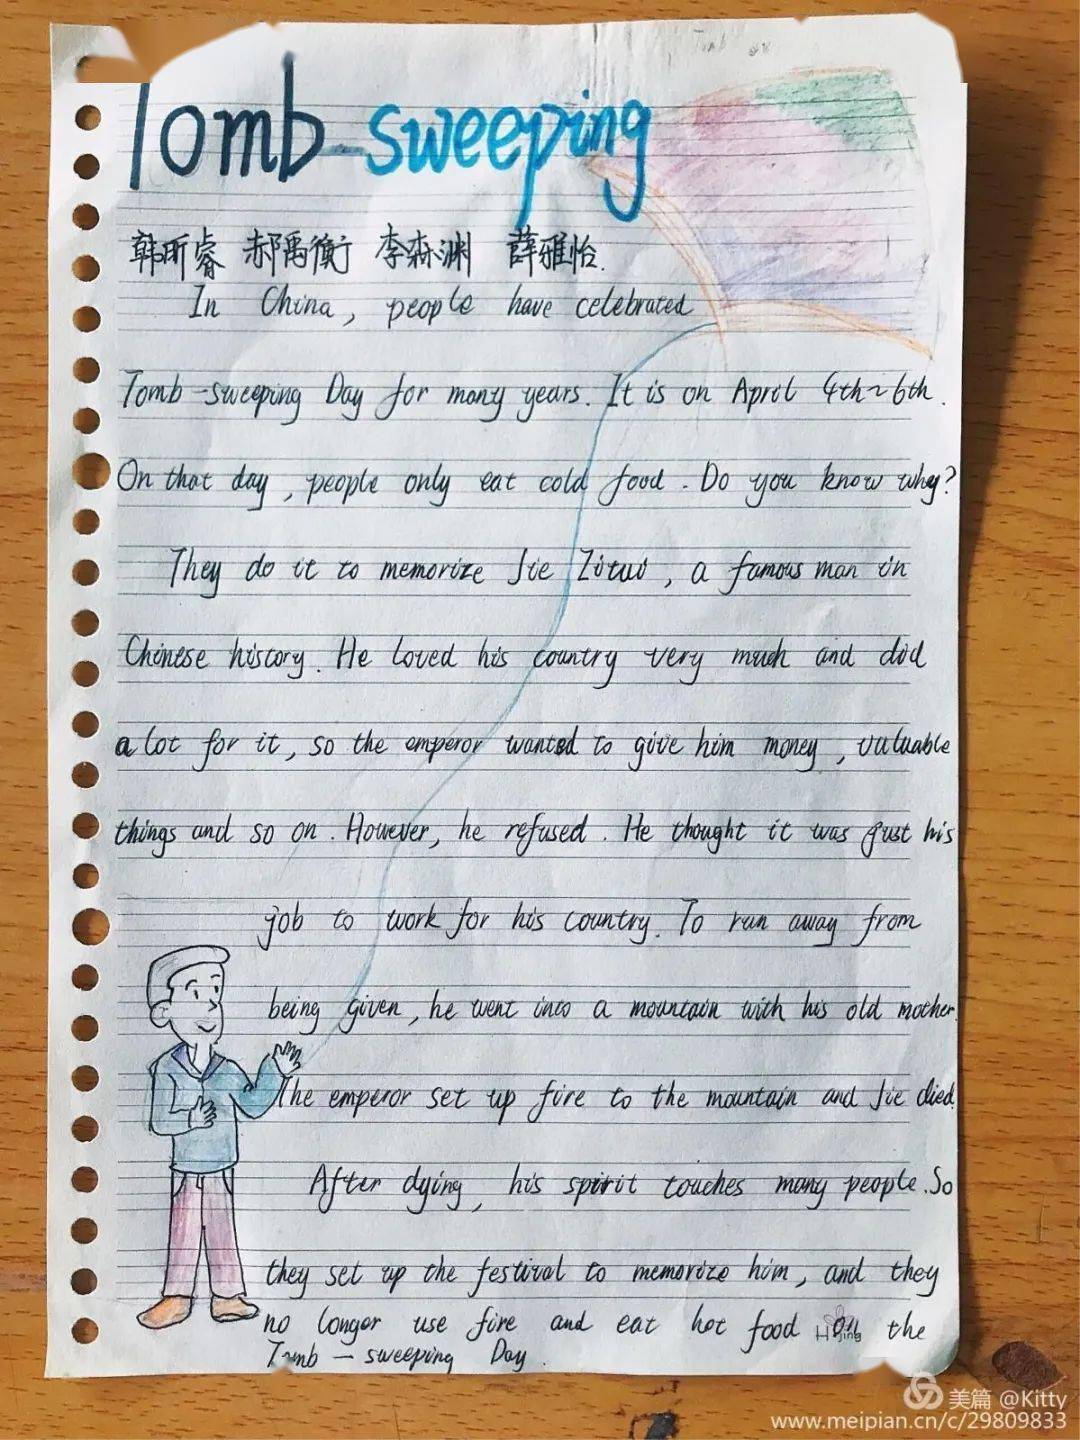 Tomb-sweeping
韩昕睿 郝禹衡 李森渊 薛雅怡.
In China, people have celebrated
Tomb-sweeping Day for many years. It is on April 4th~6th.
On that day, people only eat cold food. Do you know why?
They do it to memorize Jie Zitui, a famous man in
Chinese history. He loved his country very much and did
a lot for it, so the emperor wanted to give him money, valuable
things and so on. However, he refused. He thought it was just his
job to work for his country. To run away from
being given, he went into a mountain with his old mother.
The emperor set up fire to the mountain and Jie died.
After dying, his spirit touches many people. So
they set up the festival to memorize him, and they
no longer use fire and eat hot food on the
Tomb-sweeping Day.
美篇 @Kitty
www.meipian.cn/c/29809833